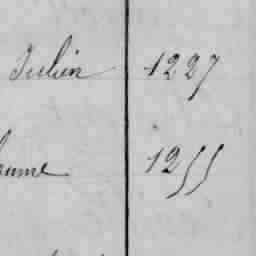 Julien 1227
aume 1255